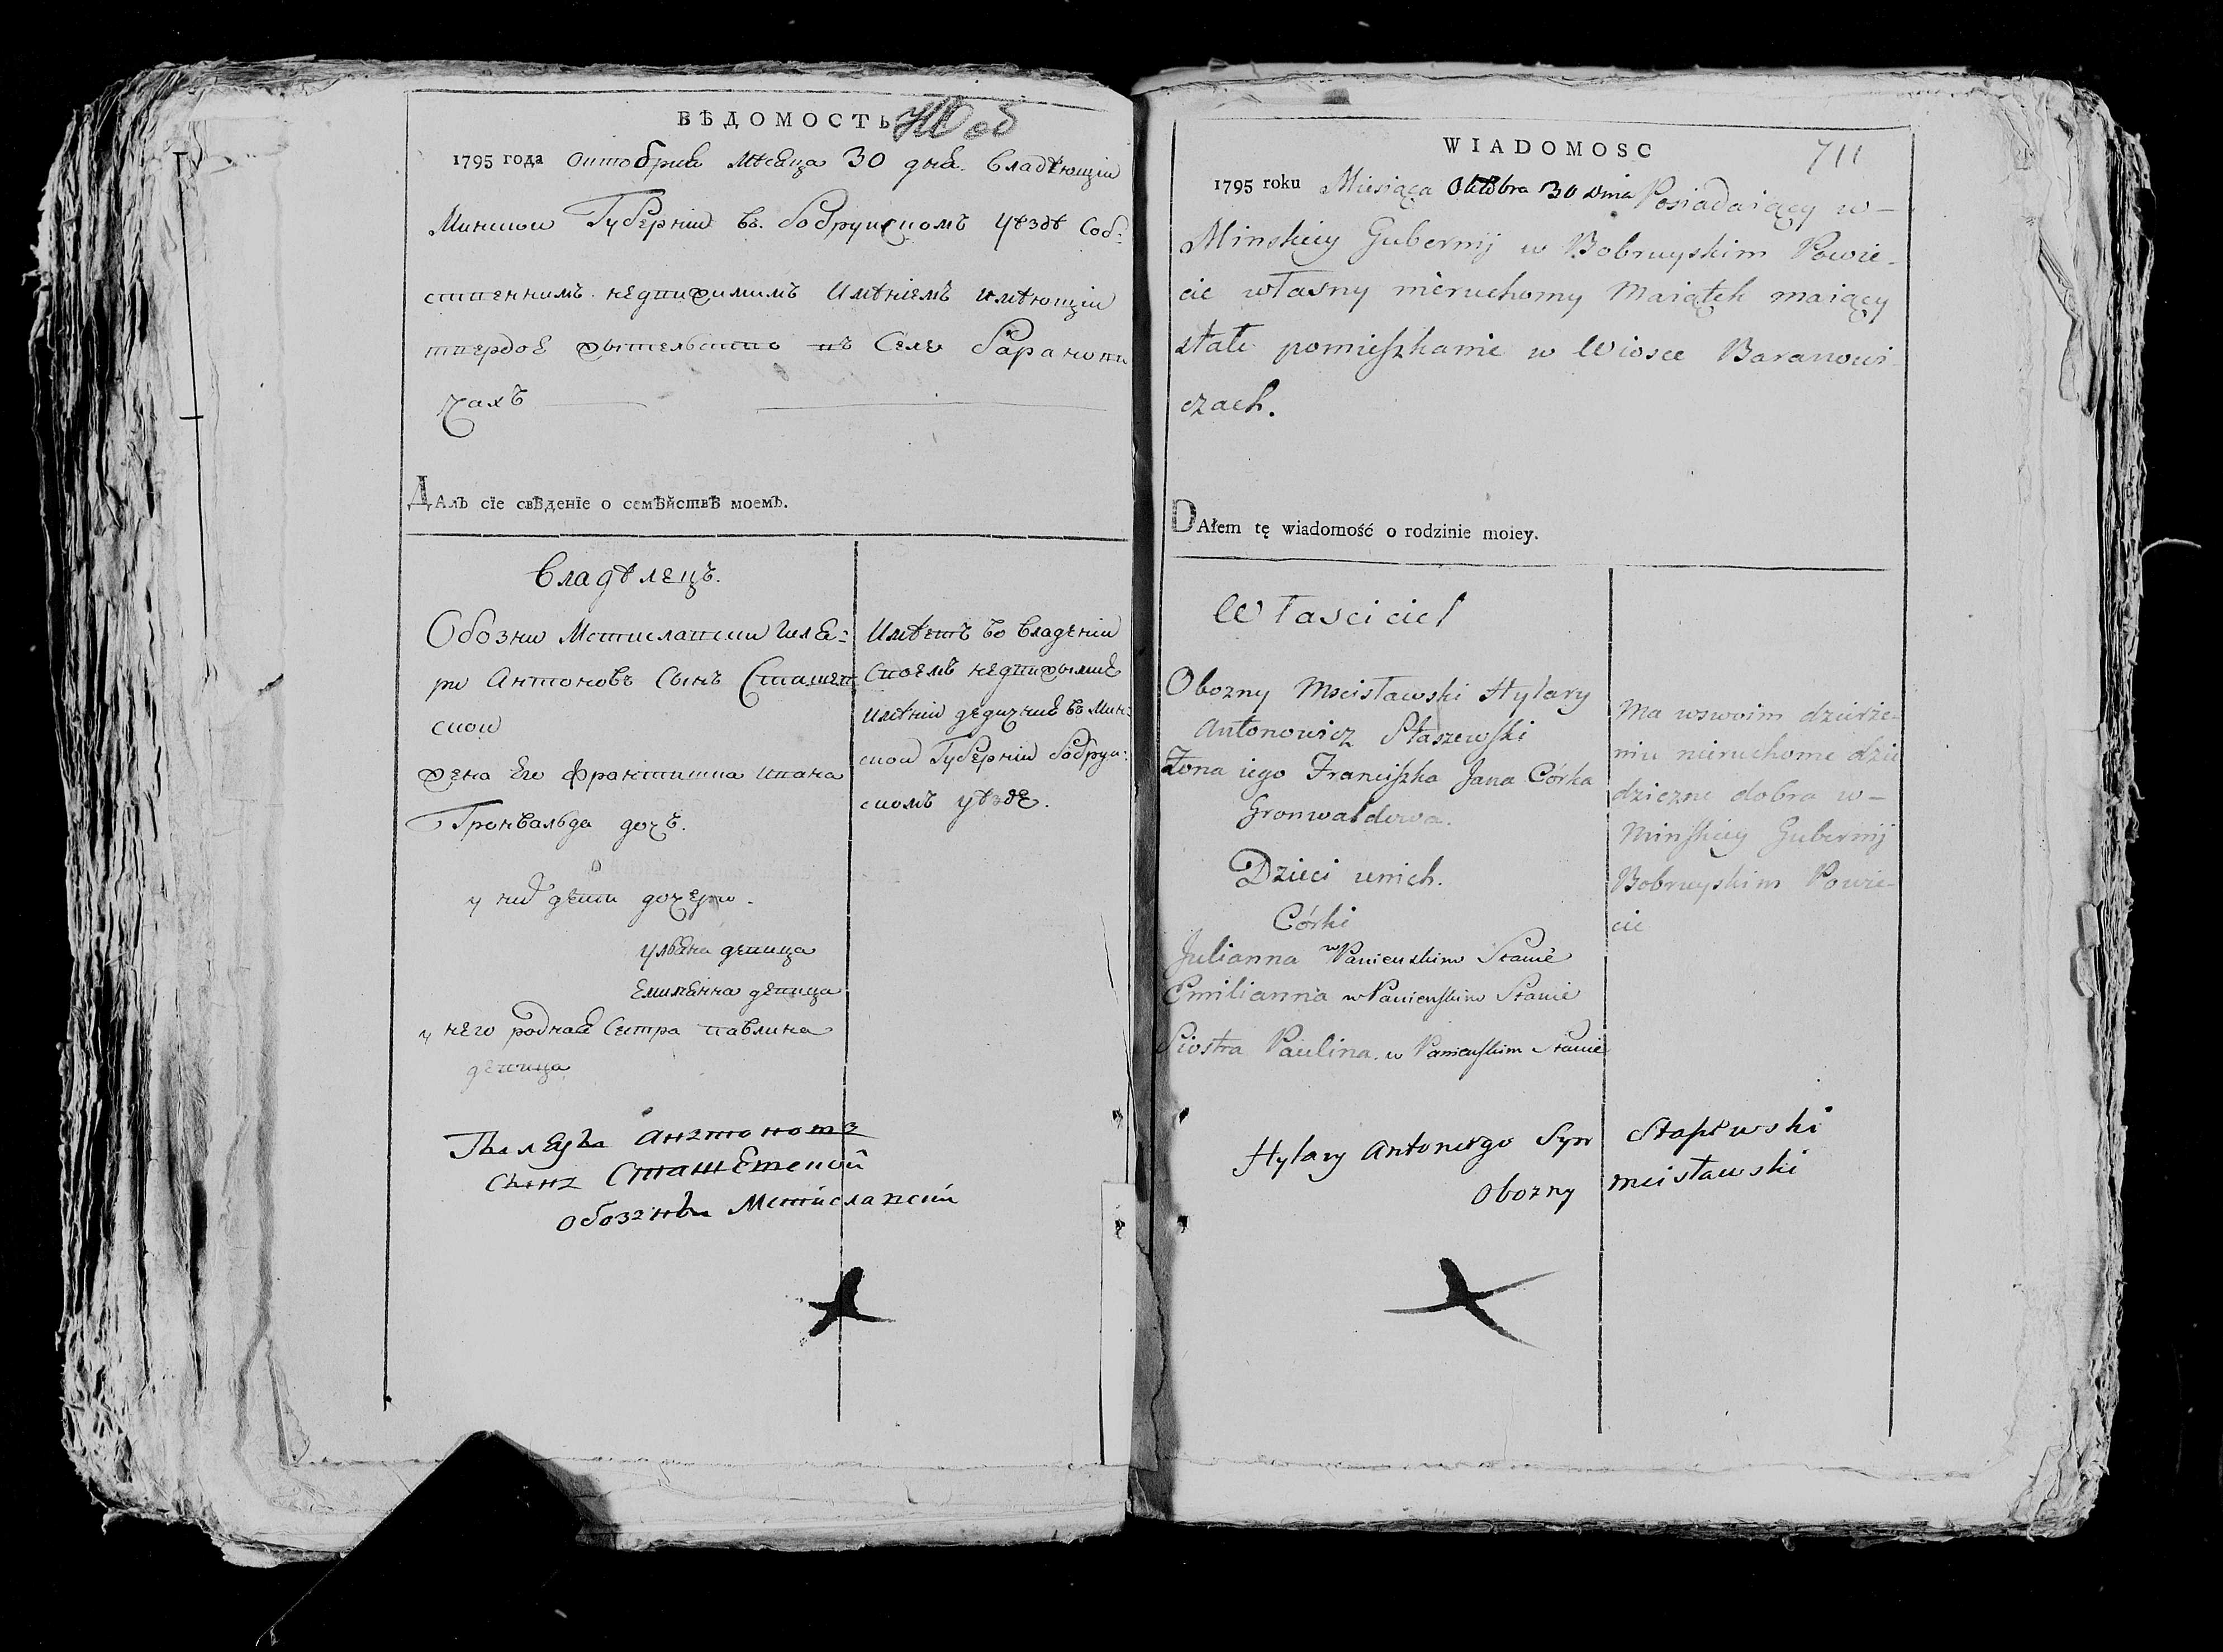 ВѢДОМОСТЬ
1795 года октобрия мѣсяца 30 дня. владѣющій
Минской Губерніи въ бобруйскомъ уѣздѣ соб:
ственнимъ недвижимимъ имѣніемъ имѣющій
твердое жытельство въ селе баранови
чахъ
Далъ сїе свѣденїе о семѣйствѣ моемъ.
владѣлецъ.
Обозни Мстиславски Гиля:
ри Антоновъ сынъ Сташев
ской
жена его Франтишка ивана
Гронвальда дочъ.
у них дети дочери.
ульяна девица
емилянна девица
у него родная систра павлина
девица
имѣетъ во владении
своемъ недвижымие
имѣнии дедичние въ Мин:
ской Губерніи бобруй:
скомъ уѣзде.
Антоновъ
Сынъ Сташевской
обозны Мстиславский
WIADOMOSC
711
1795 roku Miesiąca Oktobra 30 dnia Posiadaiący w-
Minskiey Gubernij w Bobruyskim Powie-
cie własny nieruchomy Maiątek maiący
stałe pomieszkanie w Wiosce Baranowi
czach.
DAłem tę wiadomość o rodzinie moiey.
Własciciel
Obozny Mscisławski Hylary
Antonowicz Staszewski
Żona iego Franciszka Jana Córka
Gronwaldowa.
Dzieci unich.
Córki
Julianna w Panienskim Stanie
Emilianna w Panienskim Stanie
Siostra Paulina. w Panienskim Stanie
Ma wswoim dzierże-
niu nieruchome dzie
dziczne dobra w-
Minskiey Gubernij
Bobruyskim Powie-
cie
Hylary Antoniego Syn Staszewski
Obozny mcisławski